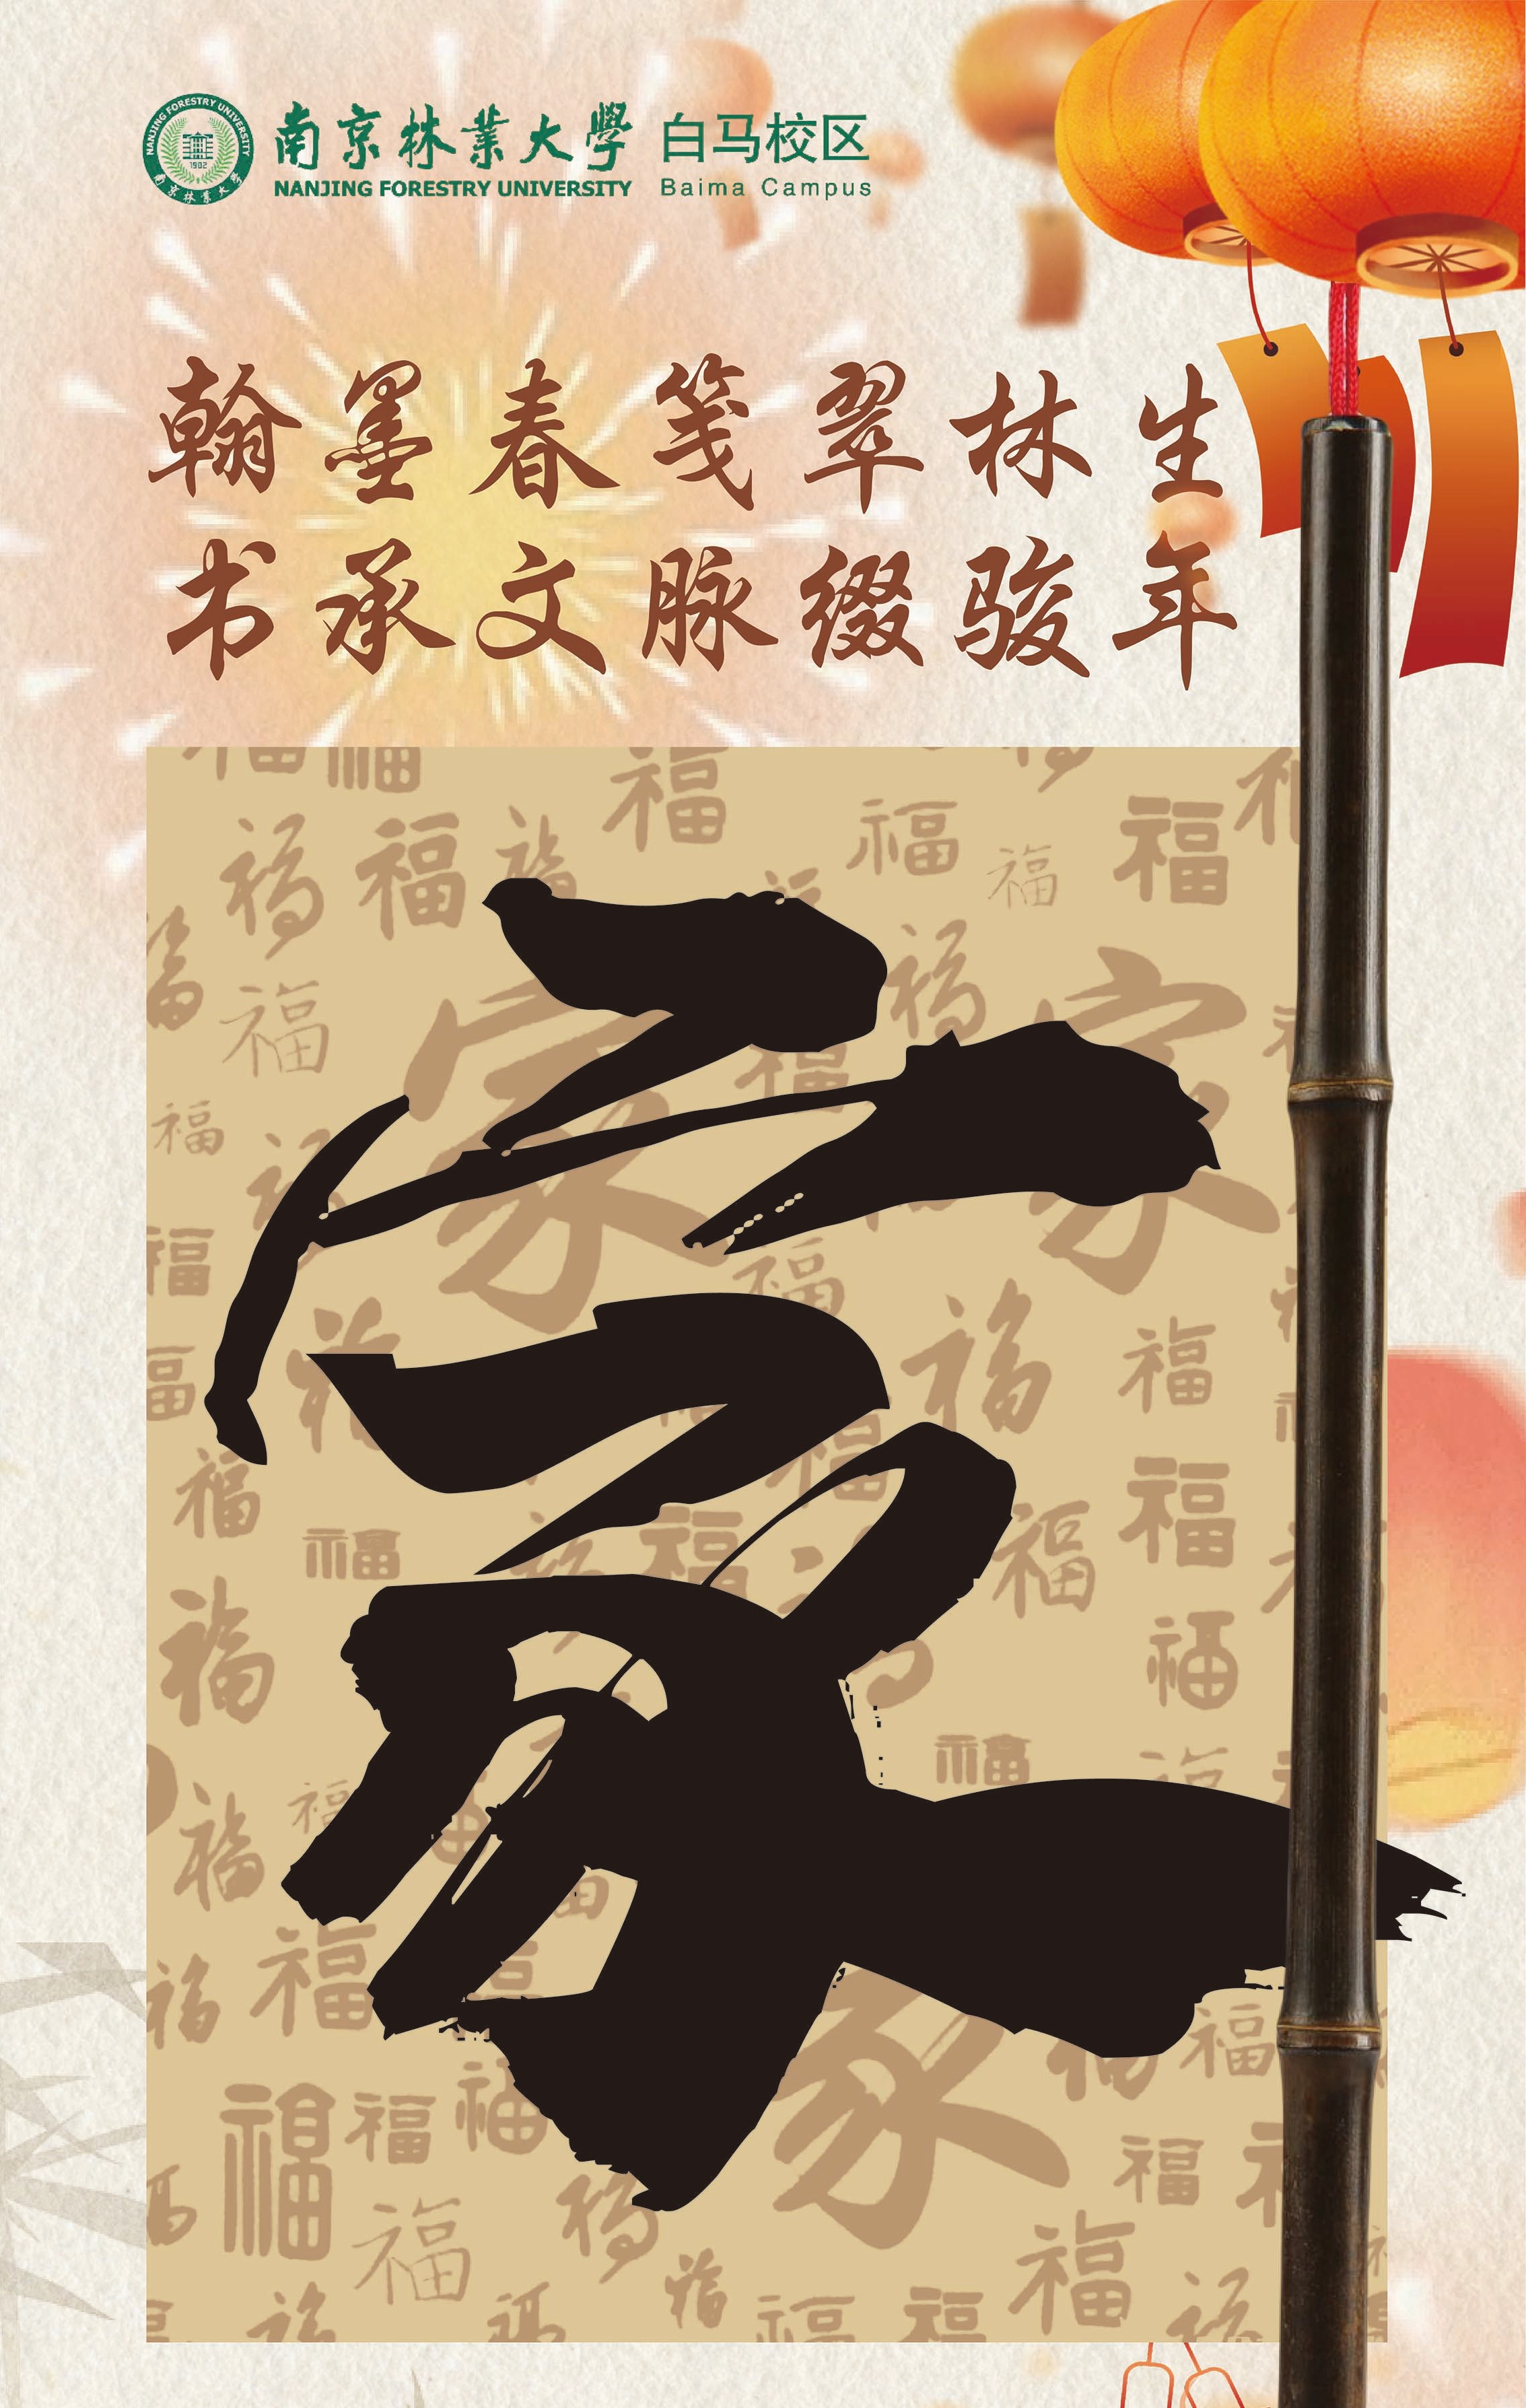 南京林業大學 白马校区
NANJING FORESTRY UNIVERSITY Baima Campus
NANJING FORESTRY UNIVERSITY
1902
南京林业大学
翰墨春笺翠林生
书承文脉缀骏年
家
福